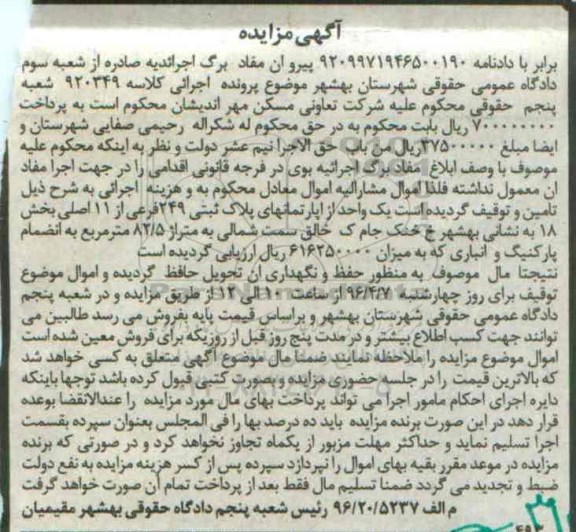 آگهی مزایده
برابر با دادنامه ۹۲۰۹۹۷۱۹۴۶۵۰۰۱۹۰ پیرو ان مفاد برگ اجرائیه صادره از شعبه سوم
دادگاه عمومی حقوقی شهرستان بهشهر موضوع پرونده اجرائی کلاسه ۹۲۰۳۴۹ شعبه
پنجم حقوقی محکوم علیه شرکت تعاونی مسکن مهر اندیشان محکوم است به پرداخت
۷۰۰۰۰۰۰۰۰ ریال بابت محکوم به در حق محکوم له شکراله رحیمی صفایی شهرستان و
ایضا مبلغ ۳۷۵۰۰۰۰۰ریال من باب حق الاجرا نیم عشر دولت و نظر به اینکه محکوم علیه
موصوف با وصف ابلاغ مفاد برگ اجرائیه بوی در فرجه قانونی اقدامی را در جهت اجرا مفاد
ان معمول نداشته فلذا اموال مشارالیه اموال معادل محکوم به و هزینه اجرائی به شرح ذیل
تامین و توقیف گردیده است یک واحد از اپارتمانهای پلاک ثبتی ۲۴۹فرعی از ۱۱ اصلی بخش
۱۸ به نشانی بهشهر خ خمک جام ک خالق سمت شمالی به متراژ ۸۲/۵ مترمربع به انضمام
پارکنیگ و انباری که به میزان ۶۱۶۲۵۰۰۰۰ ریال ارزیابی گردیده است
نتیجتا مال موصوف به منظور حفظ و نگهداری ان تحویل حافظ گردیده و اموال موضوع
توقیف برای روز چهارشنبه ۹۶/۴/۷ از ساعت ۱۰ الی ۱۲ از طریق مزایده و در شعبه پنجم
دادگاه عمومی حقوقی شهرستان بهشهر و براساس قیمت پایه بفروش می رسد طالبین می
توانند جهت کسب اطلاع بیشتر و در مدت پنج روز قبل از روزیکه برای فروش معین شده است
اموال موضوع مزایده را ملاحظه نمایند ضمنا مال موضوع آگهی متعلق به کسی خواهد شد
که بالاترین قیمت را در جلسه حضوری مزایده و بصورت کتبی قبول کرده باشد توجها باینکه
دایره اجرای احکام مامور اجرا می تواند پرداخت بهای مال مورد مزایده را عندالاقتضا بوعده
قرار دهد در این صورت برنده مزایده باید ده درصد بها را فی المجلس بعنوان سپرده بقسمت
اجرا تسلیم نماید و حداکثر مهلت مزبور از یکماه تجاوز نخواهد کرد و در صورتی که برنده
مزایده در موعد مقرر بقیه بهای اموال را نپردازد سپرده پس از کسر هزینه مزایده به نفع دولت
ضبط و تجدید می گردد ضمنا تسلیم مال فقط بعد از پرداخت تمام آن صورت خواهد گرفت
م الف ۹۶/۲۰/۵۲۳۷ رئیس شعبه پنجم دادگاه حقوقی بهشهر مقیمیان